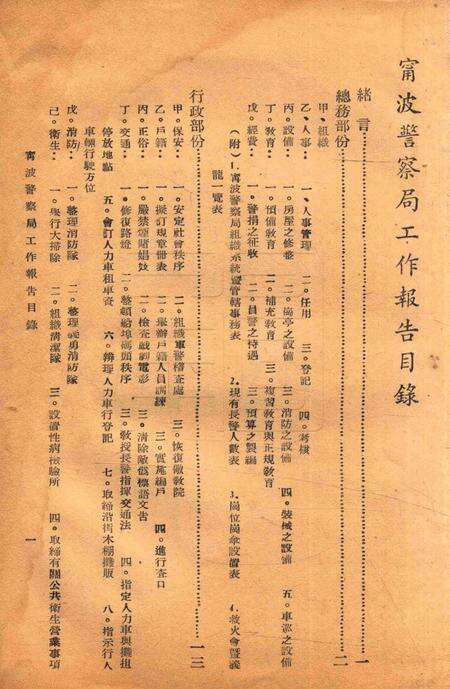 甯波警察局工作報告目錄
緒言…………一
總務部份…………二
甲．組織
乙．人事：一．人事管理 二．任用 三．登記 四．考核
丙．設備：一．房屋之修整 二．崗亭之設備 三．消防之設備 四．裝械之設備 五．車巡之設備
丁．教育：一．預備教育 二．補充教育 三．複習教育與正規教育
戊．經費：一．警捐之征收 二．員警之待遇 三．預算之製編
（附）1.甯波警察局組織系統暨管轄事務表 2.現有長警人數表 3.崗位崗傘設置表 4.救火會暨義
龍一覽表
行政部份…………一三
甲．保安：一．安定社會秩序 二．組織軍警稽查處 三．恢復徽教院
乙．戶籍：一．擬訂規章冊表 二．舉辦戶籍人員訓練 三．實施編戶 四．進行查口
丙．正俗：一．嚴禁煙賭娼妓 二．檢查戲劇電影 三．清除敵偽標語文告
丁．交通：一．修復路燈 二．整頓船埠碼頭秩序 三．教授長警指揮交通法 四．指定人力車與攤担
停放地點 五．會訂人力車租車資 六．辦理人力車行登記 七．取締沿街木棚攤販 八．指示行人
車輛行駛方位
戊．消防：一．整理消防隊 二．整理義勇消防隊
己．衛生：一．舉行大掃除 二．組織清潔隊 三．設置性病檢驗所 四．取締有關公共衛生營業事項
甯波警察局工作報告目錄 一